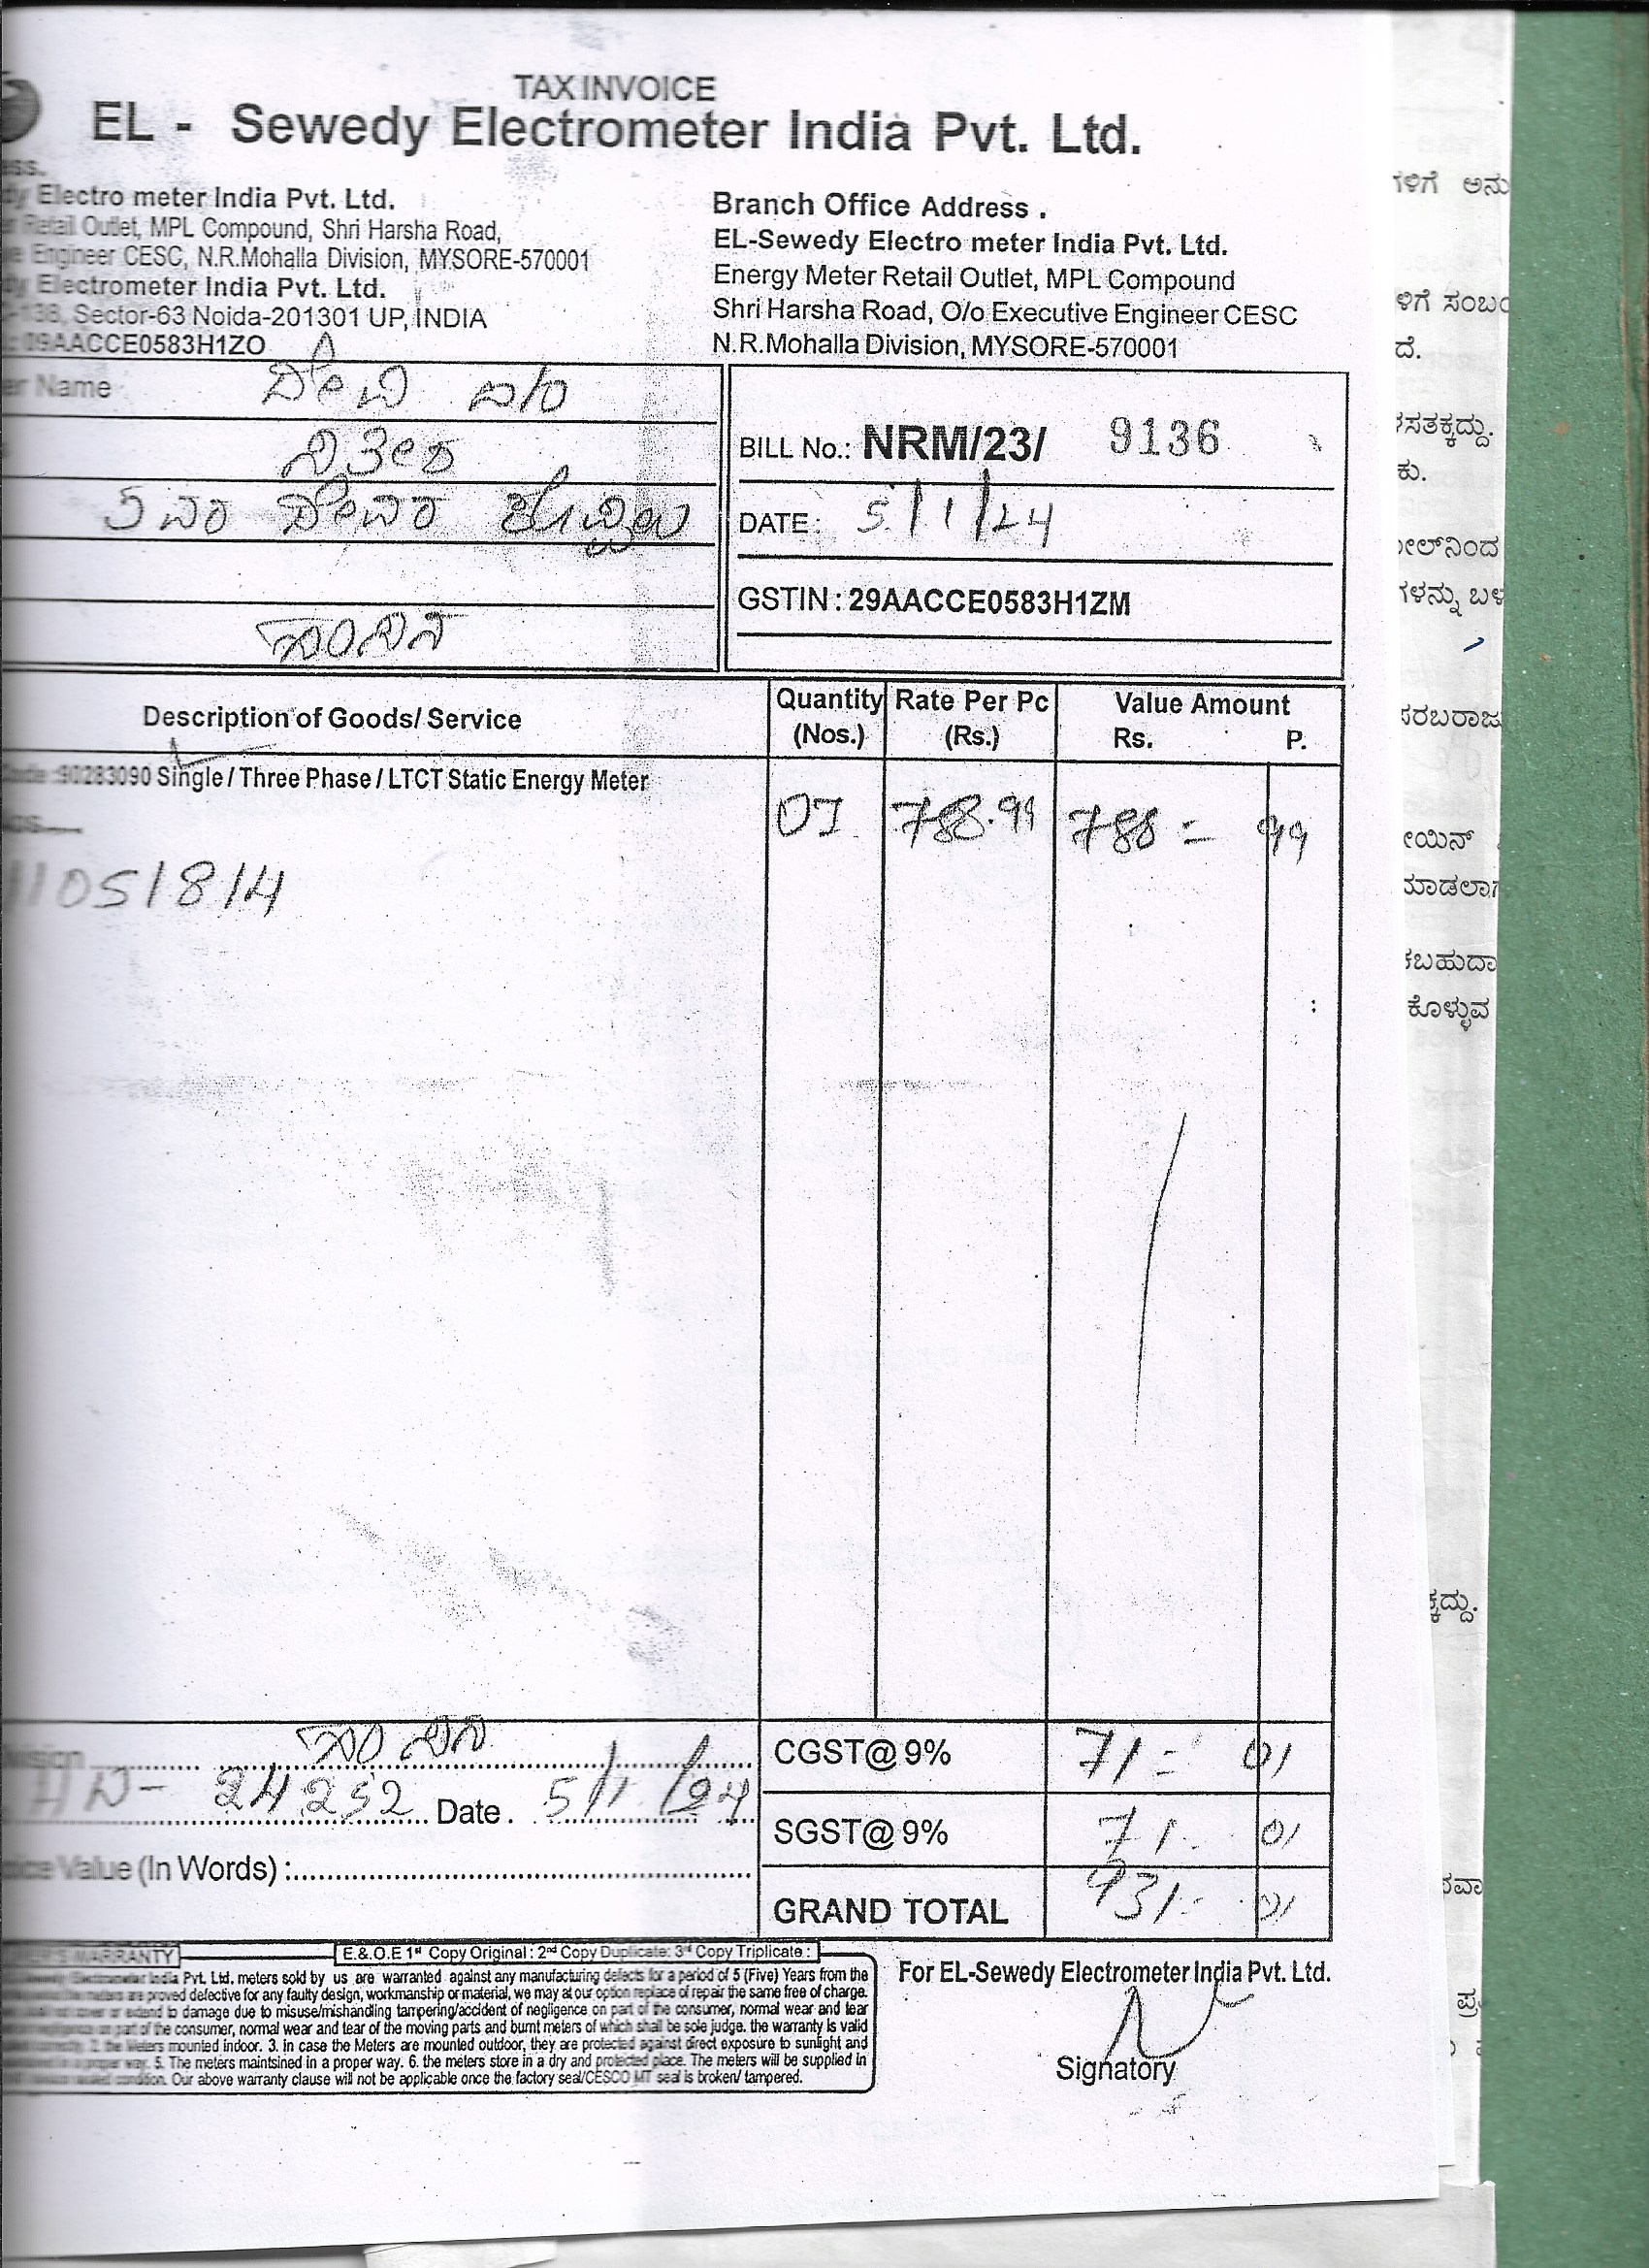 TAX INVOICE
EL - Sewedy Electrometer India Pvt. Ltd.
Electro meter India Pvt. Ltd.
Retail Outlet, MPL Compound, Shri Harsha Road,
Engineer CESC, N.R.Mohalla Division, MYSORE-570001
Electrometer India Pvt. Ltd.
Sector-63 Noida-201301 UP, INDIA
09AACCE0583H1ZO
Branch Office Address .
EL-Sewedy Electro meter India Pvt. Ltd.
Energy Meter Retail Outlet, MPL Compound
Shri Harsha Road, O/o Executive Engineer CESC
N.R.Mohalla Division, MYSORE-570001
Name ದೇವಿ
BILL No.: NRM/23/ 9136
DATE : 5/1/24
GSTIN : 29AACCE0583H1ZM
Description of Goods/ Service Quantity (Nos.) Rate Per Pc (Rs.) Value Amount Rs. P.
90283090 Single / Three Phase / LTCT Static Energy Meter
01 788.99 788 = 99
11051814
CGST@ 9% 71 = 01
24252 Date . 5/1/24
SGST@ 9% 71 - 01
Value (In Words) :
GRAND TOTAL 931 - 01
WARRANTY E.& O.E 1st Copy Original : 2nd Copy Duplicate: 3rd Copy Triplicate :
India Pvt. Ltd. meters sold by us are warranted against any manufacturing defects for a period of 5 (Five) Years from the
are proved defective for any faulty design, workmanship or material, we may at our option replace of repair the same free of charge.
to damage due to misuse/mishandling tampering/accident of negligence on part of the consumer, normal wear and tear
part of the consumer, normal wear and tear of the moving parts and burnt meters of which shall be sole judge. the warranty is valid
2. the Meters mounted indoor. 3. In case the Meters are mounted outdoor, they are protected against direct exposure to sunlight and
in a proper way. 5. The meters maintsined in a proper way. 6. the meters store in a dry and protected place. The meters will be supplied in
condition. Our above warranty clause will not be applicable once the factory seal/CESCO MT seal is broken/ tampered.
For EL-Sewedy Electrometer India Pvt. Ltd.
Signatory